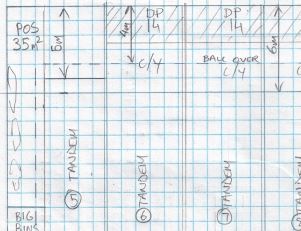 POS
35m²
5m
DP
14
4m
C/Y
DP
14
BALL OVER
C/Y
6m
⑤ TANDEM
⑥ TANDEM
⑦ TANDEM
TANDEM
BIG
BINS